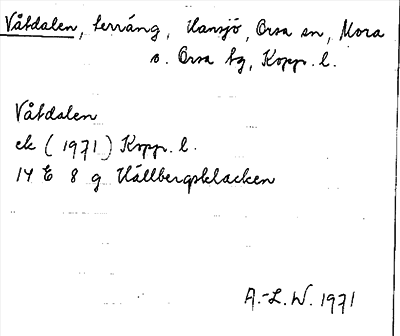 Våtdalen, terräng, Hansjö, Orsa sn, Mora
o. Orsa tg, Kopp. l.
Våtdalen
ek (1971) Kopp. l.
14 E 8 g Hällbergsklacken
A.-L. W. 1971